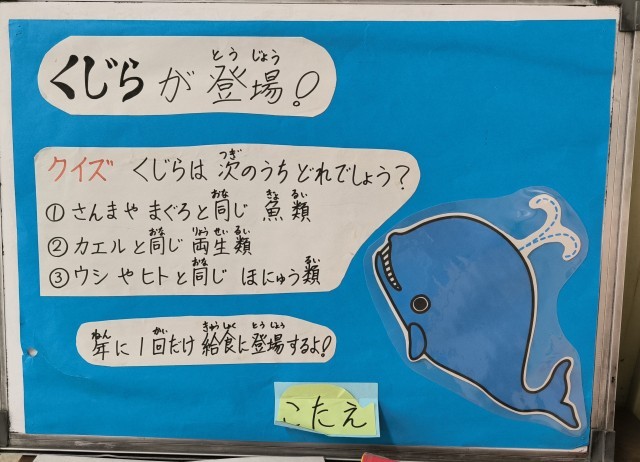 くじらが登場!
とうじょう
クイズ くじらは次のうちどれでしょう?
つぎ
①さんまやまぐろと同じ 魚類
おな ぎょ るい
②カエルと同じ 両生類
おな りょう せい るい
③ウシやヒトと同じ ほにゅう類
おな るい
年に1回だけ給食に登場するよ!
ねん かい きゅうしょく とうじょう
こたえ